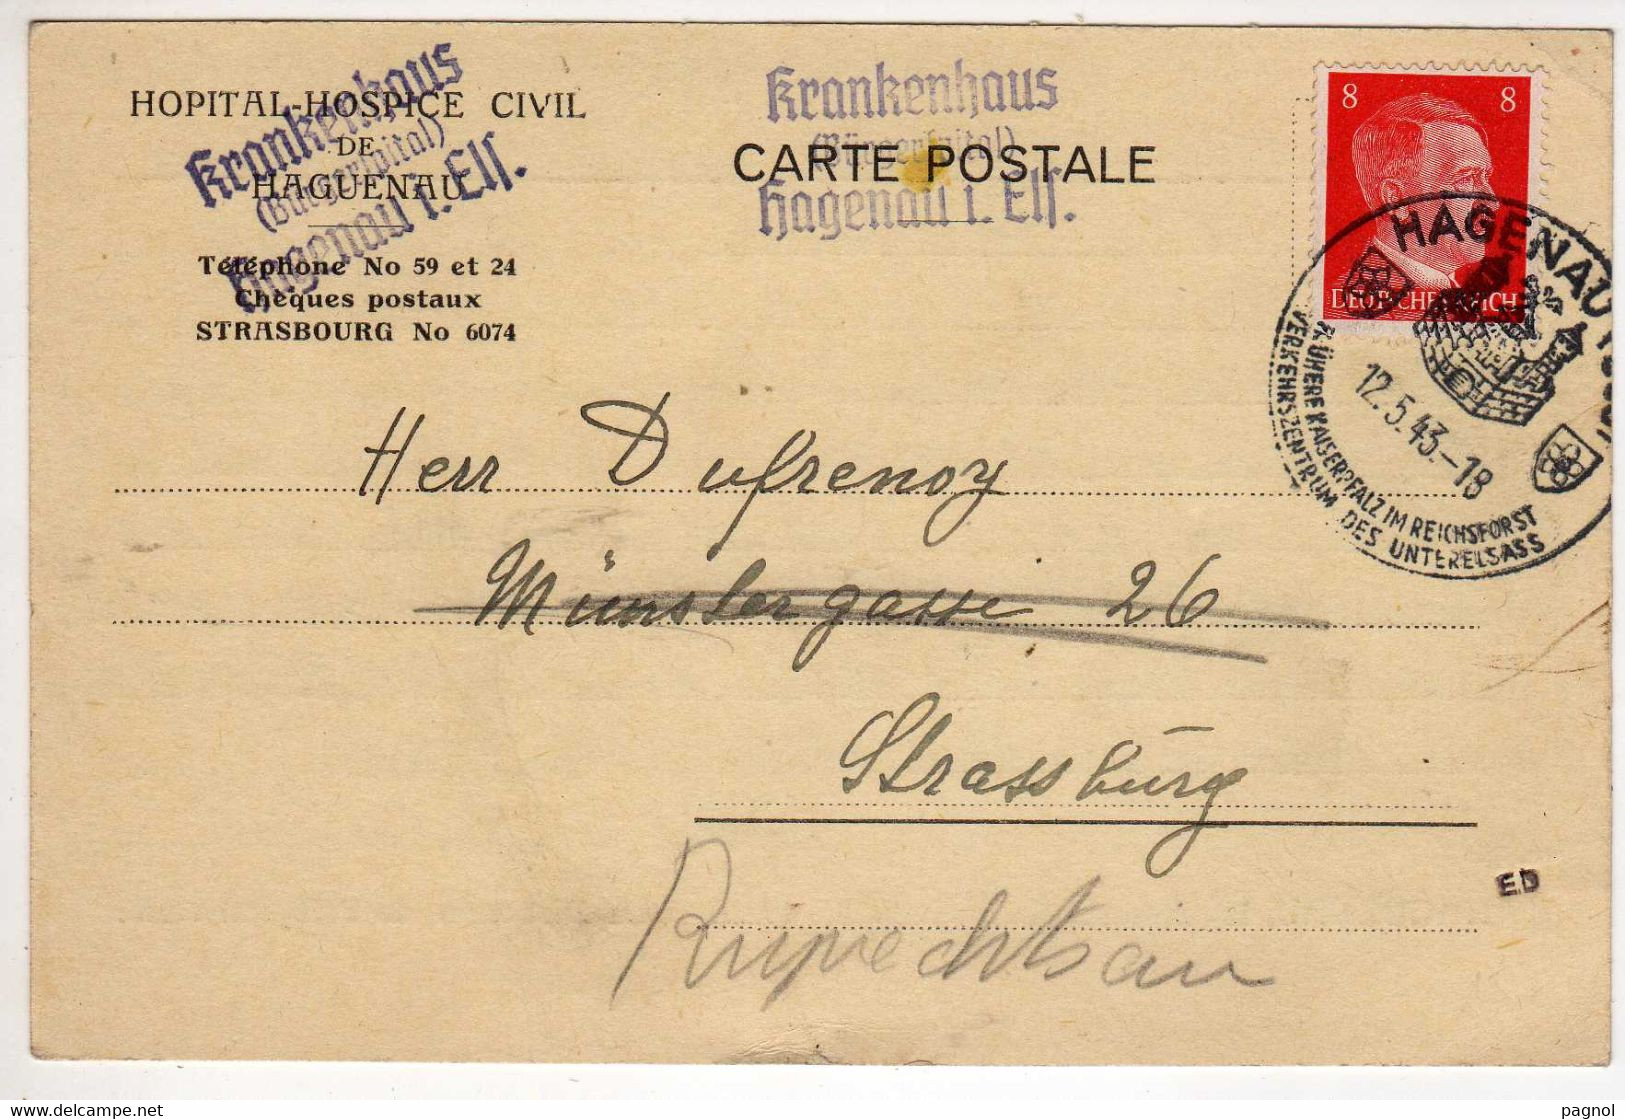 HOPITAL-HOSPICE CIVIL
DE
HAGUENAU
Téléphone No 59 et 24
Chèques postaux
STRASBOURG No 6074
Krankenhaus
(Bürgerspital)
Hagenau i. Els.
Krankenhaus
(Bürgerspital)
Hagenau i. Els.
CARTE POSTALE
8 8
DEUTSCHES REICH
HAGENAU
12.5.43.-18
FRÜHERE KAISERPFALZ IM REICHSFORST
VERKEHRSZENTRUM DES UNTERELSASS
Herr Dufrenoy
Münstergasse 26
Strassburg
Ruprechtsau
ED
delcampe.net
pagnol